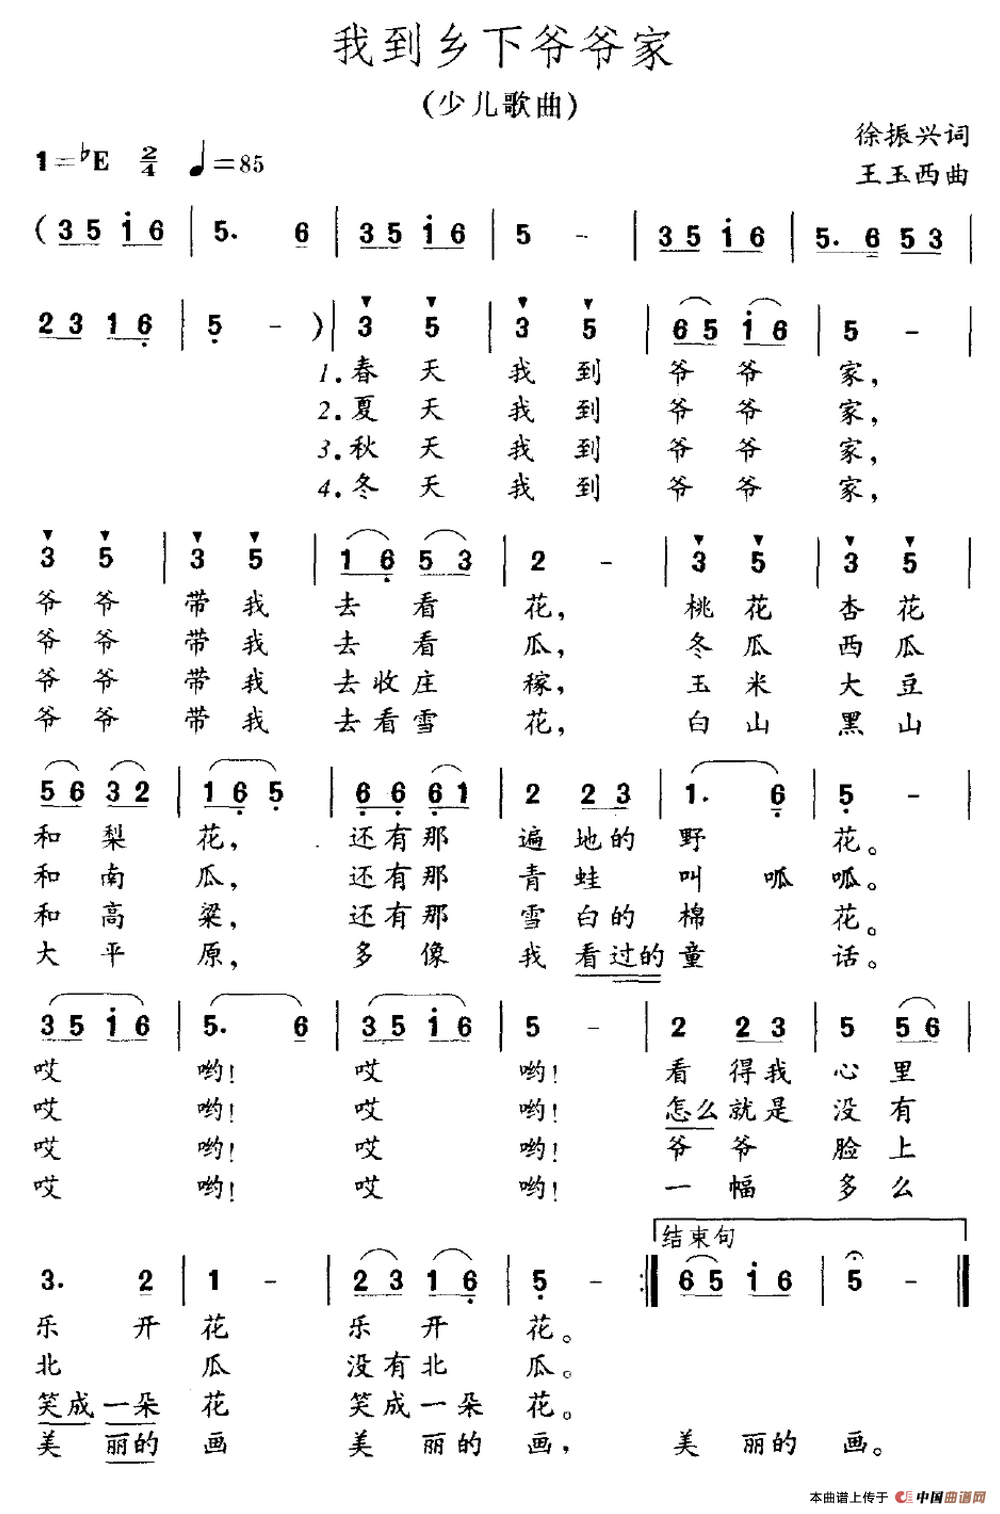 我到乡下爷爷家
(少儿歌曲)
徐振兴词
1=♭E 2/4 ♩=85
王玉西曲
( 3 5 i 6 | 5. 6 | 3 5 i 6 | 5 - | 3 5 i 6 | 5. 6 5 3 |
2 3 1 6̣ | 5̣ - ) | 3 5 | 3 5 | 6 5 i 6 | 5 - |
1.春 天 我 到 爷 爷 家,
2.夏 天 我 到 爷 爷 家,
3.秋 天 我 到 爷 爷 家,
4.冬 天 我 到 爷 爷 家,
3 5 | 3 5 | 1 6̣ 5 3 | 2 - | 3 5 | 3 5 |
爷 爷 带 我 去 看 花, 桃 花 杏 花
爷 爷 带 我 去 看 瓜, 冬 瓜 西 瓜
爷 爷 带 我 去 收 庄 稼, 玉 米 大 豆
爷 爷 带 我 去 看 雪 花, 白 山 黑 山
5 6 3 2 | 1 6̣ 5̣ | 6̣ 6̣ 6̣ 1 | 2 2 3 | 1. 6̣ | 5̣ - |
和 梨 花, 还 有 那 遍 地 的 野 花。
和 南 瓜, 还 有 那 青 蛙 叫 呱 呱。
和 高 粱, 还 有 那 雪 白 的 棉 花。
大 平 原, 多 像 我 看 过 的 童 话。
3 5 i 6 | 5. 6 | 3 5 i 6 | 5 - | 2 2 3 | 5 5 6 |
哎 哟! 哎 哟! 看 得 我 心 里
哎 哟! 哎 哟! 怎么 就 是 没 有
哎 哟! 哎 哟! 爷 爷 脸 上
哎 哟! 哎 哟! 一 幅 多 么
结束句
3. 2 | 1 - | 2 3 1 6̣ | 5̣ - :‖ 6 5 i 6 | 5 - ‖
乐 开 花 乐 开 花。
北 瓜 没 有 北 瓜。
笑 成 一 朵 花 笑 成 一 朵 花。
美 丽 的 画 美 丽 的 画, 美 丽 的 画。
本曲谱上传于 中国曲谱网